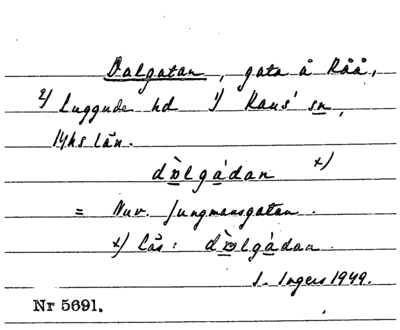 Dalgatan, gata å Råå,
2) Luggude hd 1) Raus' sn,
Mhs län.
dɒ̀lgádan x)
= Nuv. Jungmansgatan.
x) Läs: dɒ̀lgádan
I. Ingers 1949.
Nr 5691.